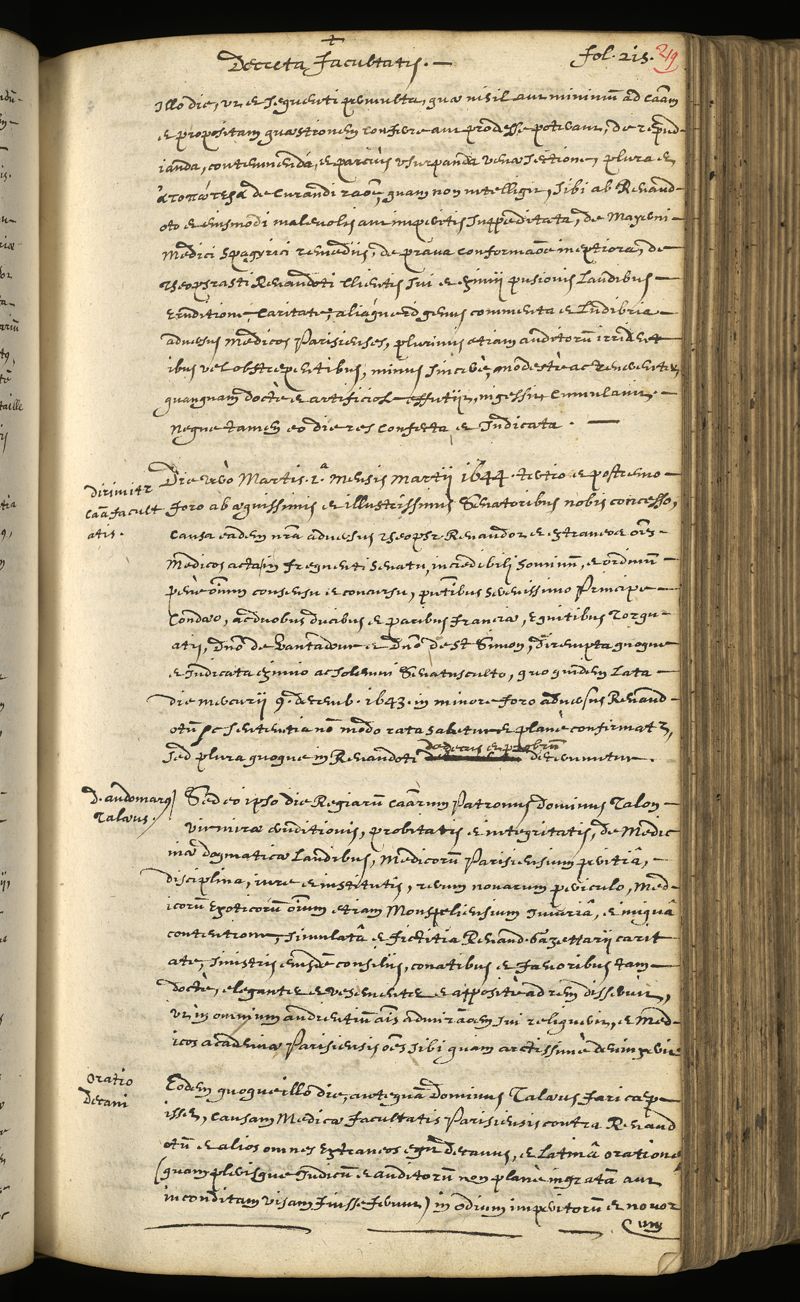 Decreta Facultatis.
fol. 215. 219
Illo die, ut et sequenti permulta, quæ nihil aut minimum ad caām
et propositam quæstionem conferre aut prodesse poterant, de repud-
ianda, contemnenda, et parcius usurpanda venæ sectione, plura et
ἀτοπώτερα de curandi raōe, quam non intelligit, sibi ab Renaud-
oto et eiusmodi malevolis aut imperitis suppeditata, de
Medici spagyrici remediis, de prava conformaōe ineptiora, de
Theophrasti Renaudoti clientis sui et eximii pusionis laudibus
eruditione, caritate, aliaque id genus commenta et ludibria
adversus medicos Parisienses, plurimis etiam auditorū irrident-
ibus vel obstrepentibus, minus sincerè, modestè ac reverenter,
quanquam doctè et artificiosè effutiit, ingessit, cumulavit.
Neque tamen eo die res confecta et Iudicata.
Dirimitr
caā facult
atis.
Die verò Martis 1.ª mensis Martij 1644. tertio et postremo
foro ab æquissimis et illustrissimis Senatoribus nobis concesso,
Causa eadem nrā adversus Theophr. Renaudot. et extraneos oēs
Medicos acta in frequenti senatu, incredibili hominū, et ordinum
penè oīum consensu et concursu, pntibus serenissimo Principe
Condæo, ac duobus ducibus et paribus Franciæ, Equitibus Torqu-
atis, Dnō de Vantadour et Dnō de St Simon, dirempta quoque
et Iudicata eximio ac solemni Senatusculto, quo quidem lata
die mercurii 9. decemb. 1643. in minore foro adversus Renaud-
otū sententia nō modò rata habetur et planè confirmatr,
sed plura quoque in Renaudoti dedecus et probrū decernuntur.
D. audomarus
Talæus.
Sed eo ipso die Regiarū caārum Patronus Dominus Talon
vir miræ eruditionis, probitatis et integritatis, de Medic
inæ dogmaticæ laudibus, Medicorū Parisiensium peritiâ,
disciplina, iure et institutis, rerum novarum periculo, Med-
icorū exoticorū oīum etiam Monspeliensium iniuriâ, et iniquâ
contentione, simulatâ et fictitia Renaud. Gazettarii carit
ate, sinistris eiusdē consiliis, conatibus et favoribus tam
doctè, eleganter et vehementer et appositè ad rem disseruit,
ut in omnium audientiū aīs admirāōem sui reliquerit, et Med-
icos academiæ Parisiensis oēs sibi quam arctissimè devinxerit.
Oratio
Decani
Eodem quoque illo die, antequā Dominus Talæus fari cœp-
isset, causam Medicæ Facultatis Parisiensis contra Renaud
otū et alios omnes extraneos decanus, et Latinâ oratione
(quam plerisque Iudicū et auditorū non planè ingratam aut
inconditam visam fuisse ferunt) in odium imperitorū et novor
um